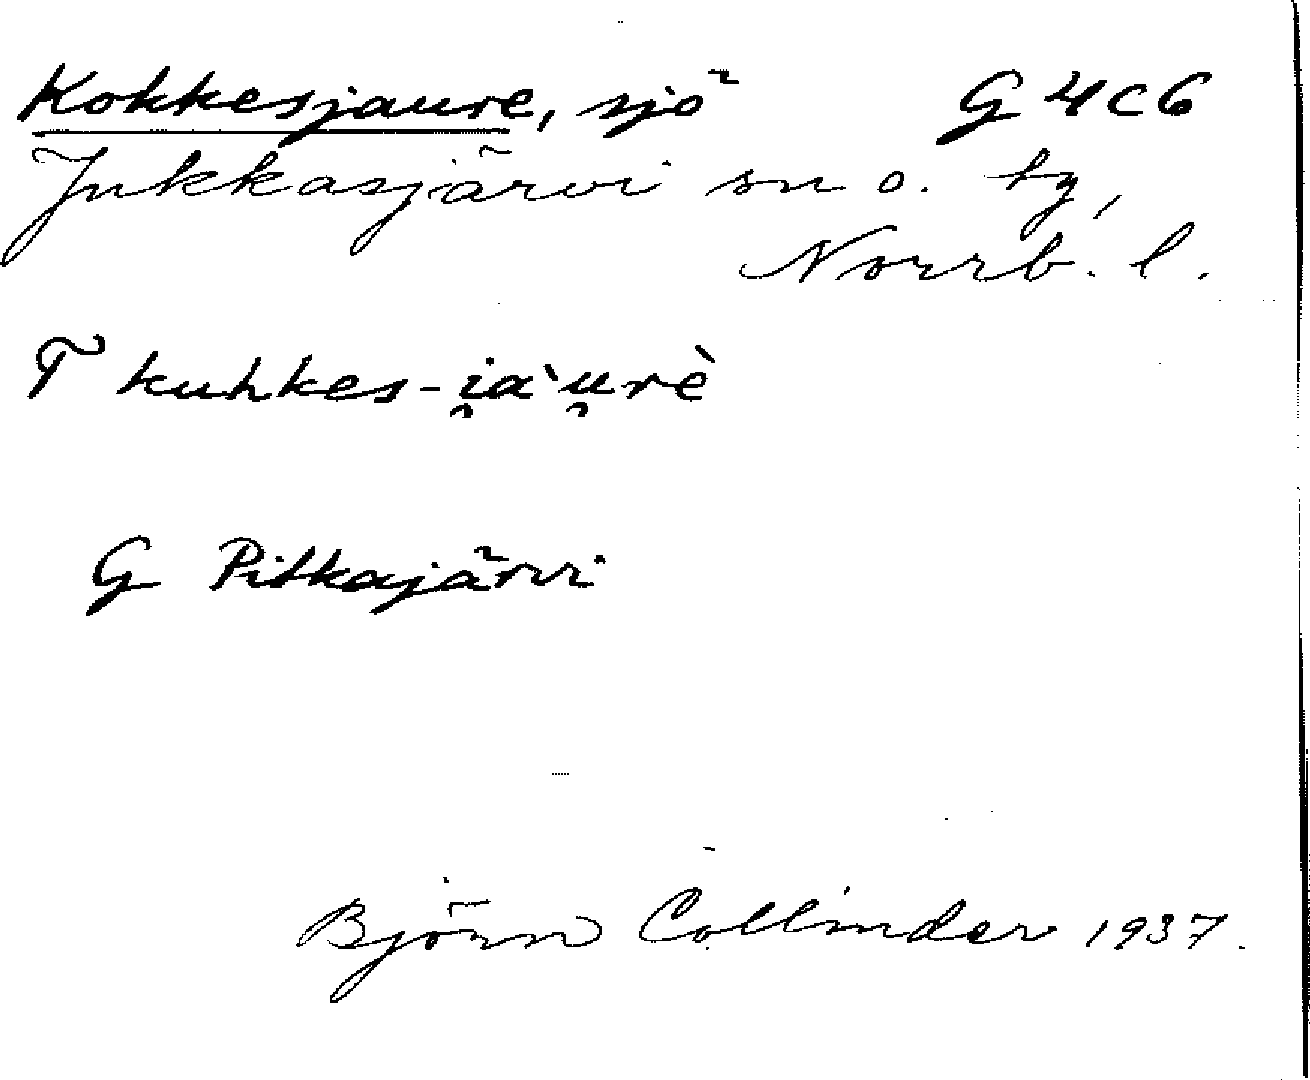 Kokkesjaure, sjö G 4 c 6
Jukkasjärvi sn o. tg,
Norrb. l.
T kuhkes-i̯aˋu̯rè
G Pitkajärvi
Björn Collinder 1937.